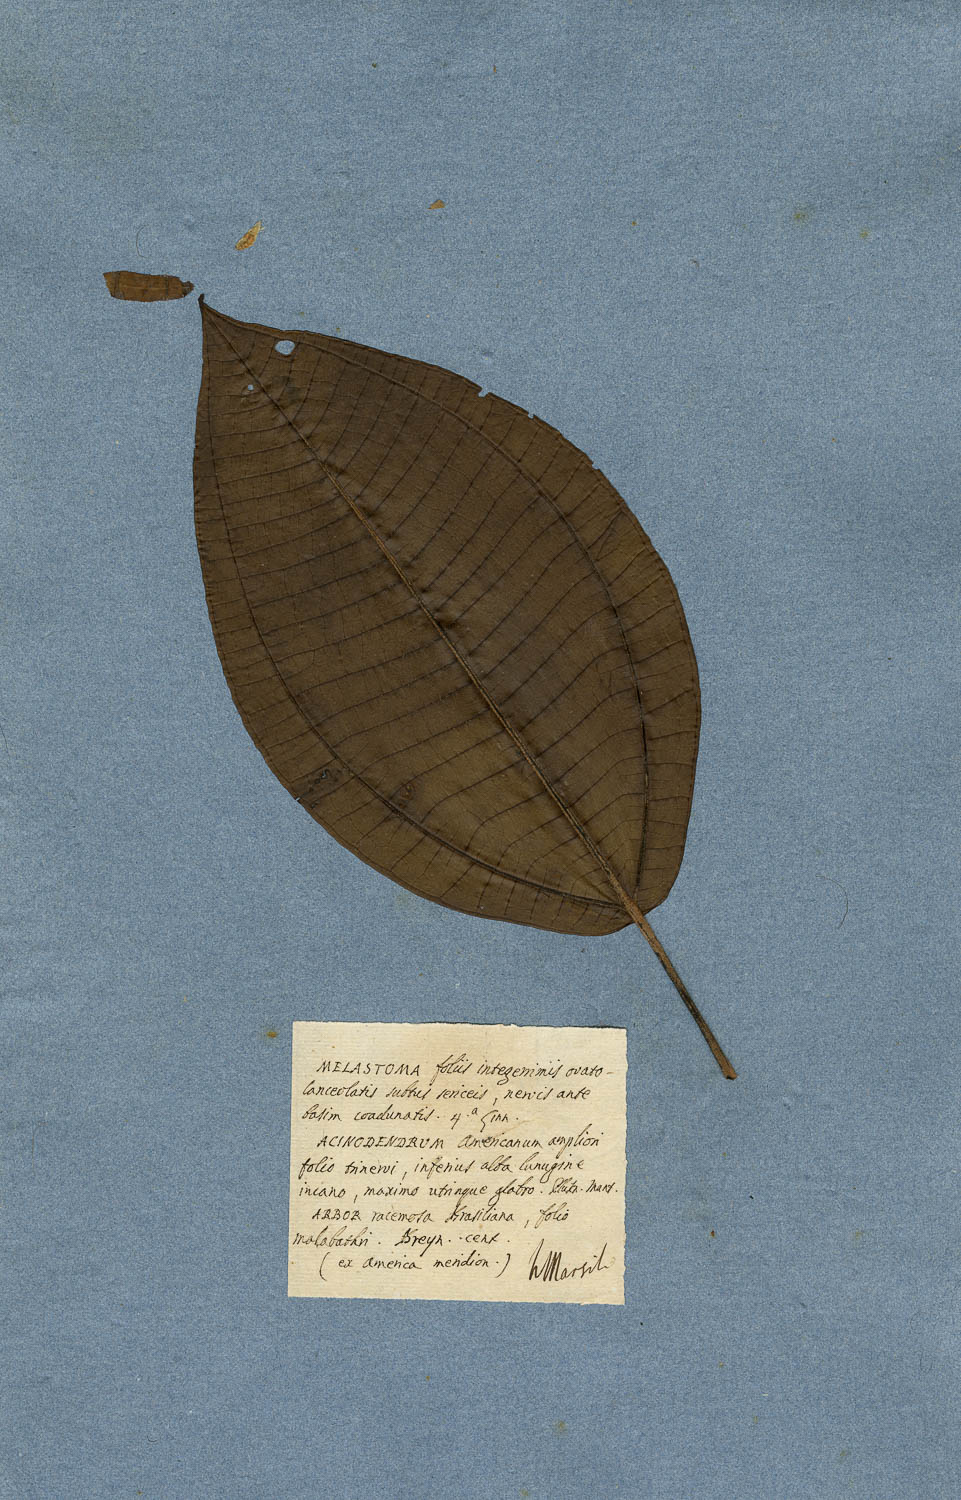 MELASTOMA foliis integerrimis ovato-
lanceolatis subtus sericeis, nervis ante
basim coadunatis. 4.a Linn.
ACINODENDRUM Americanum ampliori
folio trinervi, inferius alba lanugine
incano, maximo utrinque glabro. Pluk. Mant.
ARBOR racemosa Brasiliana, folio
malabathri. Breyn. cent.
(ex america meridion.)